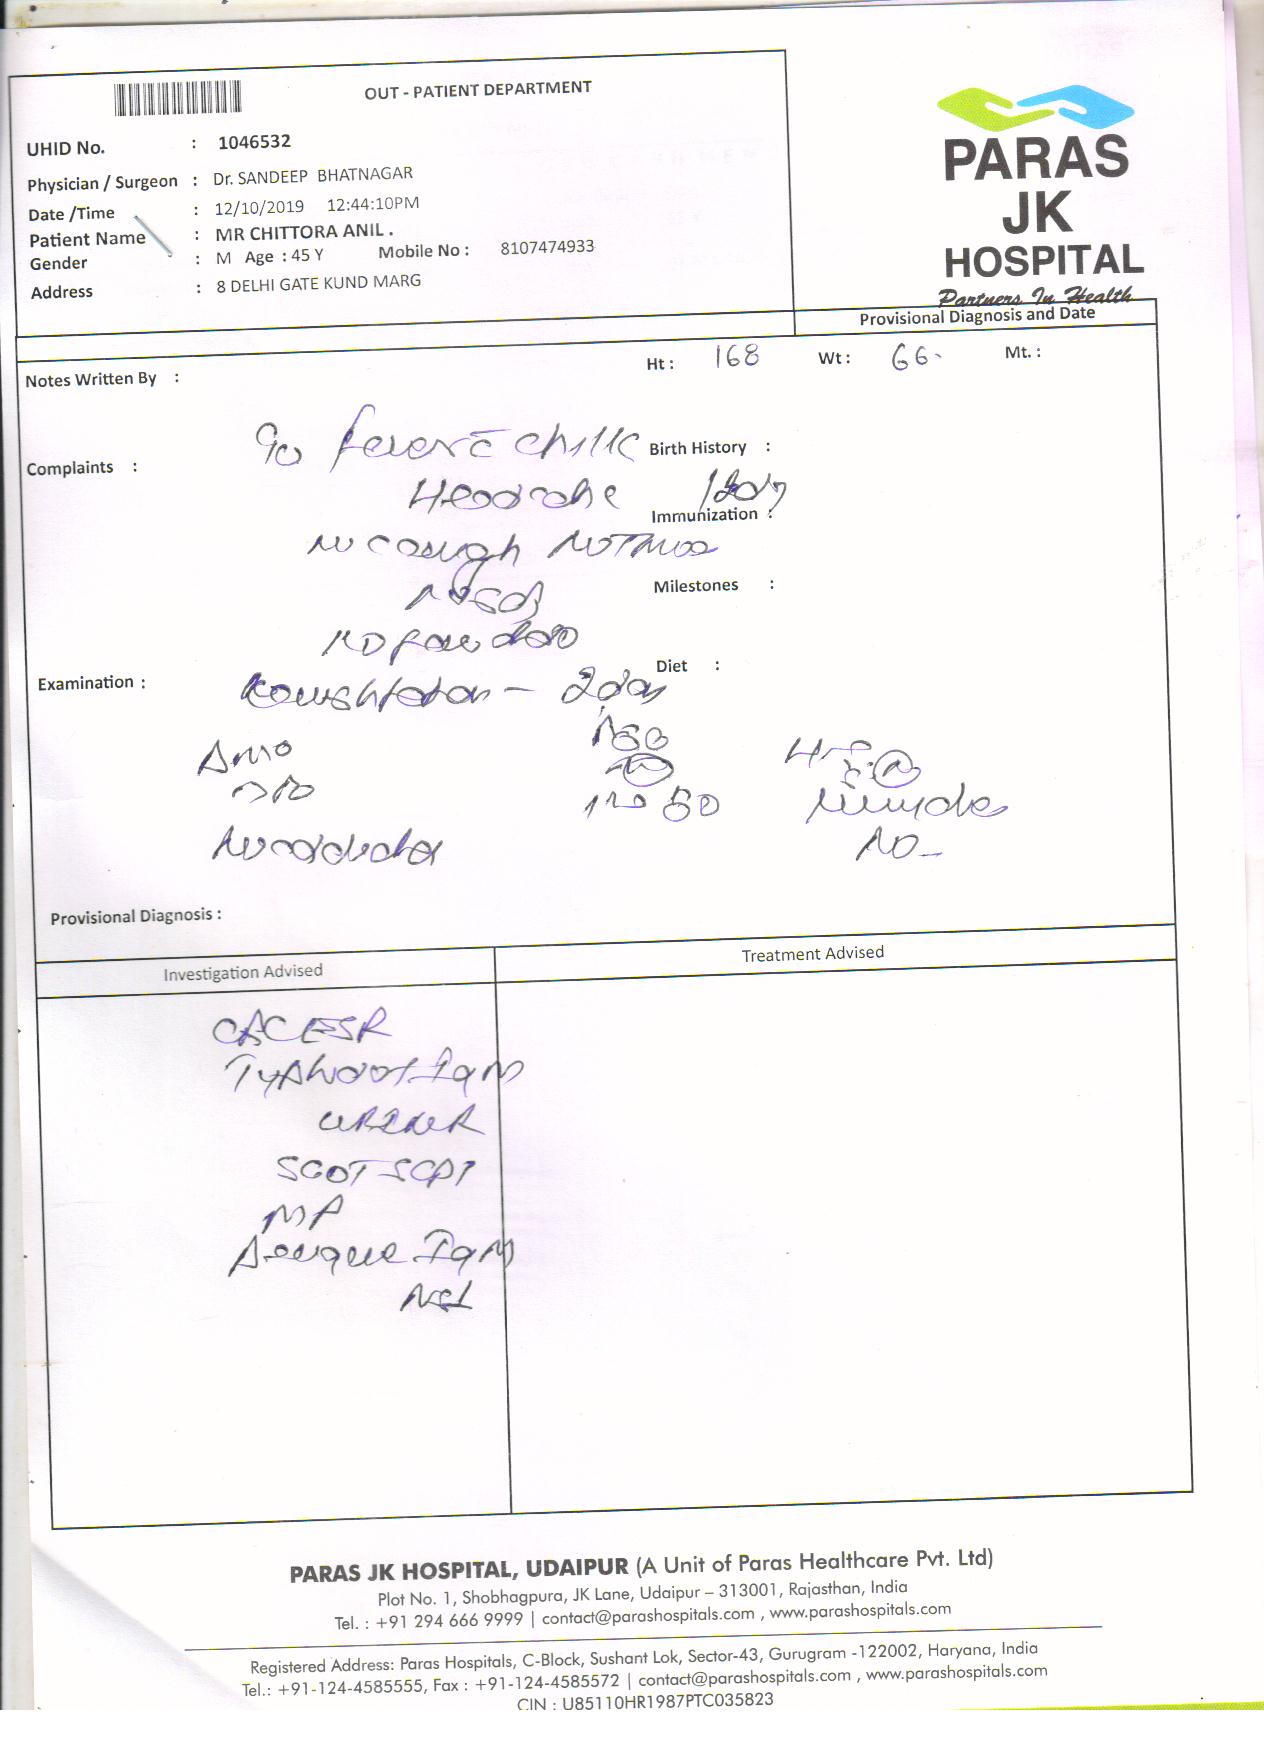 OUT - PATIENT DEPARTMENT
UHID No. : 1046532
Physician / Surgeon : Dr. SANDEEP BHATNAGAR
Date /Time : 12/10/2019 12:44:10PM
Patient Name : MR CHITTORA ANIL .
Gender : M Age : 45 Y Mobile No : 8107474933
Address : 8 DELHI GATE KUND MARG
PARAS
JK
HOSPITAL
Partners In Health
Provisional Diagnosis and Date
Notes Written By :
Ht : 168 Wt : 66 Mt. :
Complaints : fever c chills
Birth History :
Headache
Immunization :
no cough
Milestones :
Diet :
Examination :
Provisional Diagnosis :
Investigation Advised
Treatment Advised
CBC ESR
Typhidot IgM
URINE R
SGOT SGPT
MP
Dengue IgM
NS1
PARAS JK HOSPITAL, UDAIPUR (A Unit of Paras Healthcare Pvt. Ltd)
Plot No. 1, Shobhagpura, JK Lane, Udaipur – 313001, Rajasthan, India
Tel. : +91 294 666 9999 | contact@parashospitals.com , www.parashospitals.com
Registered Address: Paras Hospitals, C-Block, Sushant Lok, Sector-43, Gurugram -122002, Haryana, India
Tel.: +91-124-4585555, Fax : +91-124-4585572 | contact@parashospitals.com , www.parashospitals.com
CIN : U85110HR1987PTC035823